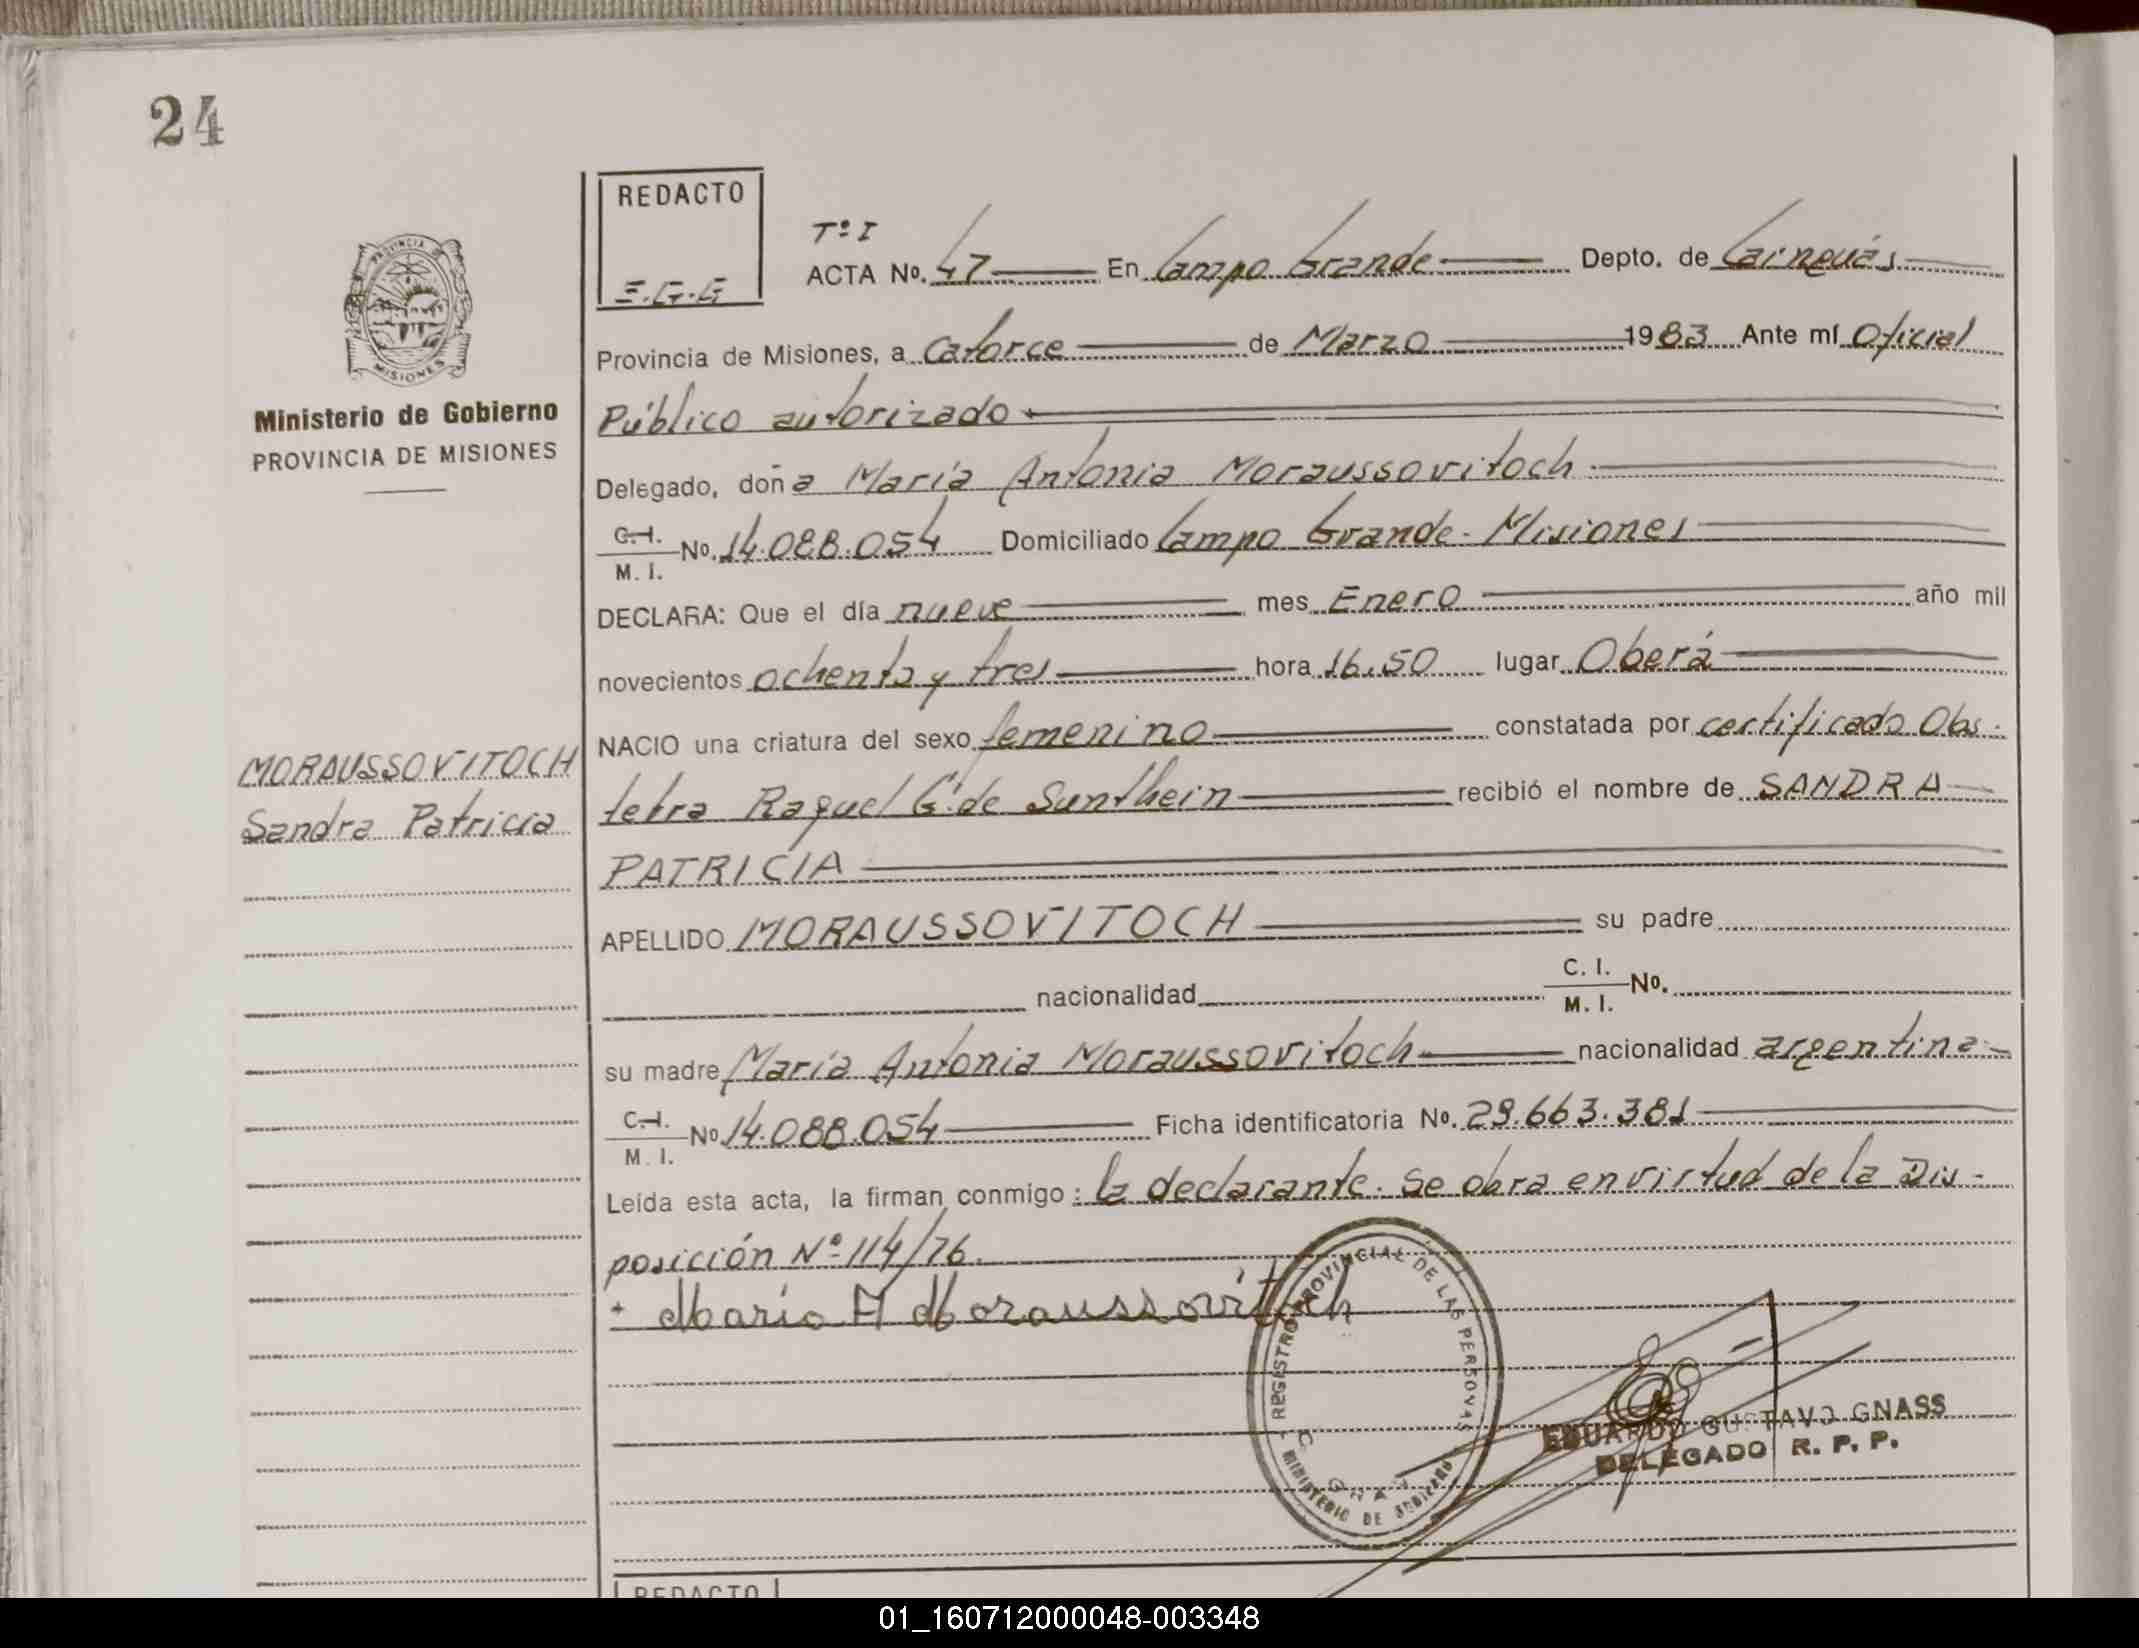 24
REDACTO
E.G.G
Tº I
ACTA Nº. 47 En Campo Grande Depto. de Cainguás
Provincia de Misiones, a Catorce de Marzo 1983 Ante mí Oficial
Público autorizado
PROVINCIA DE
MISIONES
Ministerio de Gobierno
PROVINCIA DE MISIONES
Delegado, doña María Antonia Moraussovitoch
C.I.
M. I.
Nº. 14.088.054 Domiciliado Campo Grande - Misiones
DECLARA: Que el día nueve mes Enero año mil
novecientos ochenta y tres hora 16.50 lugar Oberá
NACIO una criatura del sexo femenino constatada por certificado Obs-
MORAUSSOVITOCH
Sandra Patricia
tetra Raquel G. de Sunthein recibió el nombre de SANDRA
PATRICIA
APELLIDO MORAUSSOVITOCH su padre
nacionalidad C. I.
M. I.
Nº.
su madre María Antonia Moraussovitoch nacionalidad argentina
C.I.
M. I.
Nº 14.088.054 Ficha identificatoria Nº. 29.663.381
Leída esta acta, la firman conmigo: la declarante. Se obra en virtud de la Dis-
posición Nº 114/76.
+ Maria A Moraussovitoch
REGISTRO PROVINCIAL DE LAS PERSONAS
MINISTERIO DE GOBIERNO
EDUARDO GUSTAVO GNASS
DELEGADO R. P. P.
REDACTO
01_160712000048-003348